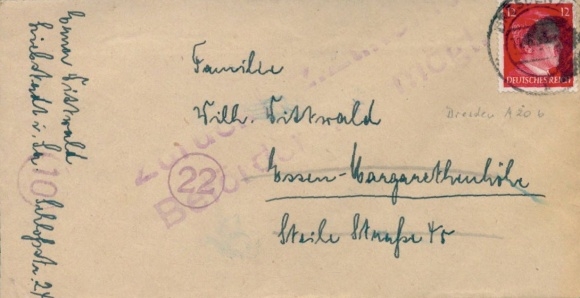 Familie
Wilh. Dittwald
Essen-Margarethenhöhe
Steile Straße 45
Dittwald
Liebstadt i. Sa. Schloßstr. 24
12 12
DEUTSCHES REICH
Dresden A 20 b
Zurück
22
10